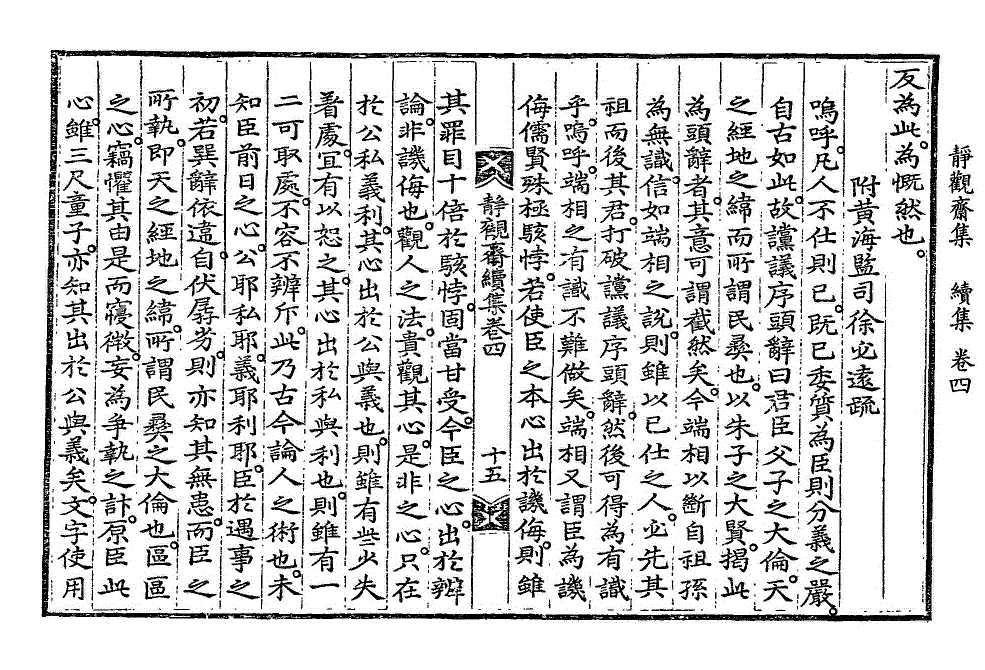 靜觀齋集　續集　卷四
反為此。為慨然也。
附黃海監司徐必遠疏
嗚呼。凡人不仕則已。旣已委質為臣則分義之嚴。
自古如此。故讜議序頭辭曰君臣父子之大倫。天
之經地之緯而所謂民彝也。以朱子之大賢。揭此
為頭辭者。其意可謂截然矣。今端相以斷自祖孫
為無識。信如端相之說。則雖以已仕之人。必先其
祖而後其君。打破讜議序頭辭。然後可得為有識
乎。嗚呼。端相之有識不難做矣。端相又謂臣為譏
侮儒賢殊極駭悖。若使臣之本心出於譏侮。則雖
靜觀齋續集卷四
十五
其罪目十倍於駭悖。固當甘受。今臣之心。出於辨
論。非譏侮也。觀人之法。貴觀其心。是非之心。只在
於公私義利。其心出於公與義也。則雖有些少失
著處。宜有以恕之。其心出於私與利也。則雖有一
二可取處。不容不辨斥。此乃古今論人之術也。未
知臣前日之心。公耶私耶。義耶利耶。臣於遇事之
初。若巽辭依違。自伏孱劣。則亦知其無患。而臣之
所執。即天之經地之緯。所謂民彝之大倫也。區區
之心。竊懼其由是而寢微。妄為爭執之計。原臣此
心。雖三尺童子。亦知其出於公與義矣。文字使用